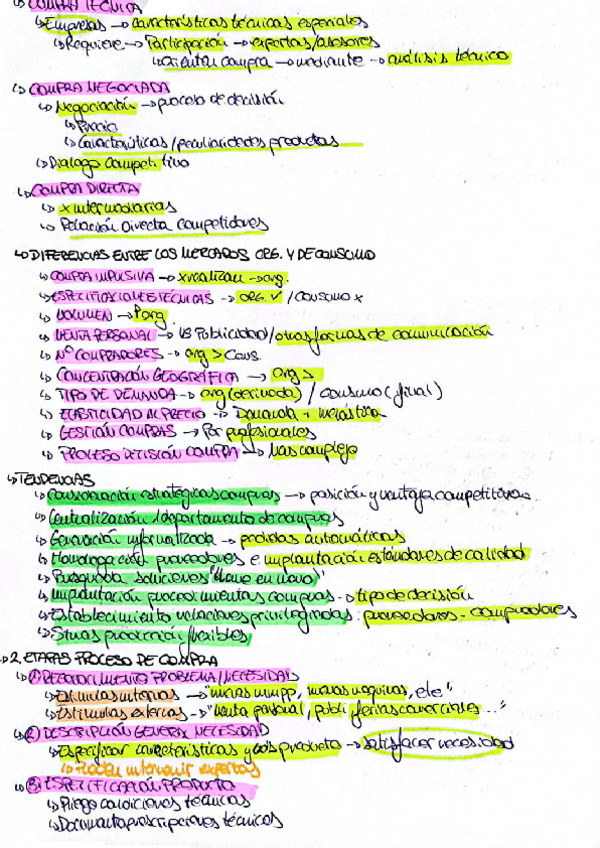 ↳ COMPRA TÉCNICA
↳ Empresas → características técnicas especiales
↳ Requiere → Participación → expertos/asesores
↳ orientan compra → mediante → análisis técnico
↳ COMPRA NEGOCIADA
↳ Negociación → proceso de decisión
↳ Precio
↳ Características/peculiaridades productos
↳ Dialogo competitivo
↳ COMPRA DIRECTA
↳ x intermediarios
↳ Relación Directa competidores
↳ DIFERENCIAS ENTRE LOS MERCADOS ORG. Y DE CONSUMO
↳ COMPRA IMPULSIVA → x realizan → org.
↳ ESPECIFICACIONES TÉCNICAS → ORG. ✓ / CONSUMO x
↳ VOLUMEN → ↑ org
↳ VENTA PERSONAL → VS Publicidad/otras formas de comunicación
↳ Nº COMPRADORES → org > Cons.
↳ CONCENTRACIÓN GEOGRÁFICA → org >
↳ TIPO DE DEMANDA → org (derivada) / consumo (final)
↳ ELASTICIDAD AL PRECIO → Demanda + inelástica
↳ GESTIÓN COMPRAS → Por profesionales
↳ PROCESO DECISIÓN COMPRA → Más complejo
↳ TENDENCIAS
↳ Consideración estratégicas compras → posición y ventaja competitivas
↳ Centralización/departamento de compras
↳ Generación informatizada → pedidos automáticos
↳ Homologación proveedores e implantación estándares de calidad
↳ Búsqueda soluciones "llave en mano"
↳ Implantación procedimientos compras → tipo de decisión
↳ Establecimiento relaciones privilegiadas: proveedores - compradores
↳ Stmas producción flexibles
↳ 2. ETAPAS PROCESO DE COMPRA
↳ ① RECONOCIMIENTO PROBLEMA/NECESIDAD
↳ Estímulos internos → "nuevas mmpp, nuevas maquinas, etc"
↳ Estímulos externos → "venta personal, publi ferias comerciales..."
↳ ② DESCRIPCIÓN GENERAL NECESIDAD
↳ Especificar características y producto → satisfacer necesidad
↳ Pueden intervenir expertos
↳ ③ ESPECIFICACIÓN PRODUCTO
↳ Pliego condiciones técnicas
↳ Documento prescripciones técnicas